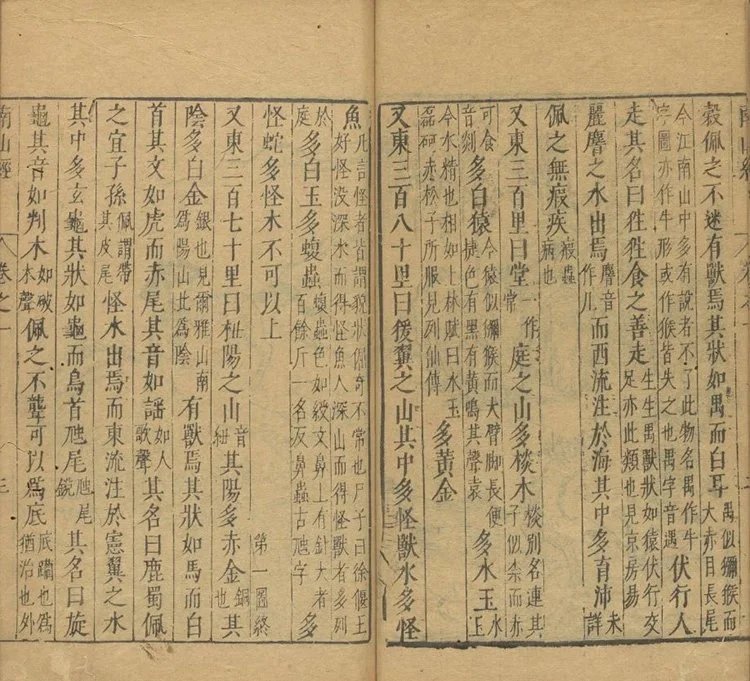 穀佩之不迷有獸焉其狀如禺而白耳禺似獼猴而大赤目長尾
今江南山中多有說者不了此物名禺作牛字圖亦作牛形或作猴皆失之也禺字音遇伏行人
走其名曰狌狌食之善走生生禺獸狀如猿伏行交足亦此類也見京房易
麗𪊨之水出焉𪊨音作几而西流注於海其中多育沛未詳
佩之無瘕疾瘕蟲病也
又東三百里曰堂一作常庭之山多棪木棪別名連其子似柰而赤
可食音剡多白猿今猿似獼猴而大臂脚長便捷色有黑有黃鳴其聲哀多水玉水玉
今水精也相如上林賦曰水玉磊砢赤松子所服見列仙傳多黃金
又東三百八十里曰猨翼之山其中多怪獸水多怪
魚凡言怪者皆謂貌狀倔奇不常也尸子曰徐偃王好怪沒深水而得怪魚入深山而得怪獸者多列
於庭多白玉多蝮蟲蝮蟲色如綬文鼻上有針大者百餘斤一名反鼻蟲古虺字
怪蛇多怪木不可以上第一圖終
又東三百七十里曰杻陽之山音紐其陽多赤金銅也其
陰多白金銀也見爾雅山南為陽山北為陰有獸焉其狀如馬而白
首其文如虎而赤尾其音如謠如人歌聲其名曰鹿蜀佩
之宜子孫佩謂帶其皮尾怪水出焉而東流注於憲翼之水
其中多玄龜其狀如龜而鳥首虺尾虺尾銳其名曰旋
龜其音如判木如破木聲佩之不聾可以為底底躪也為猶治也外
南山經 卷之一 三